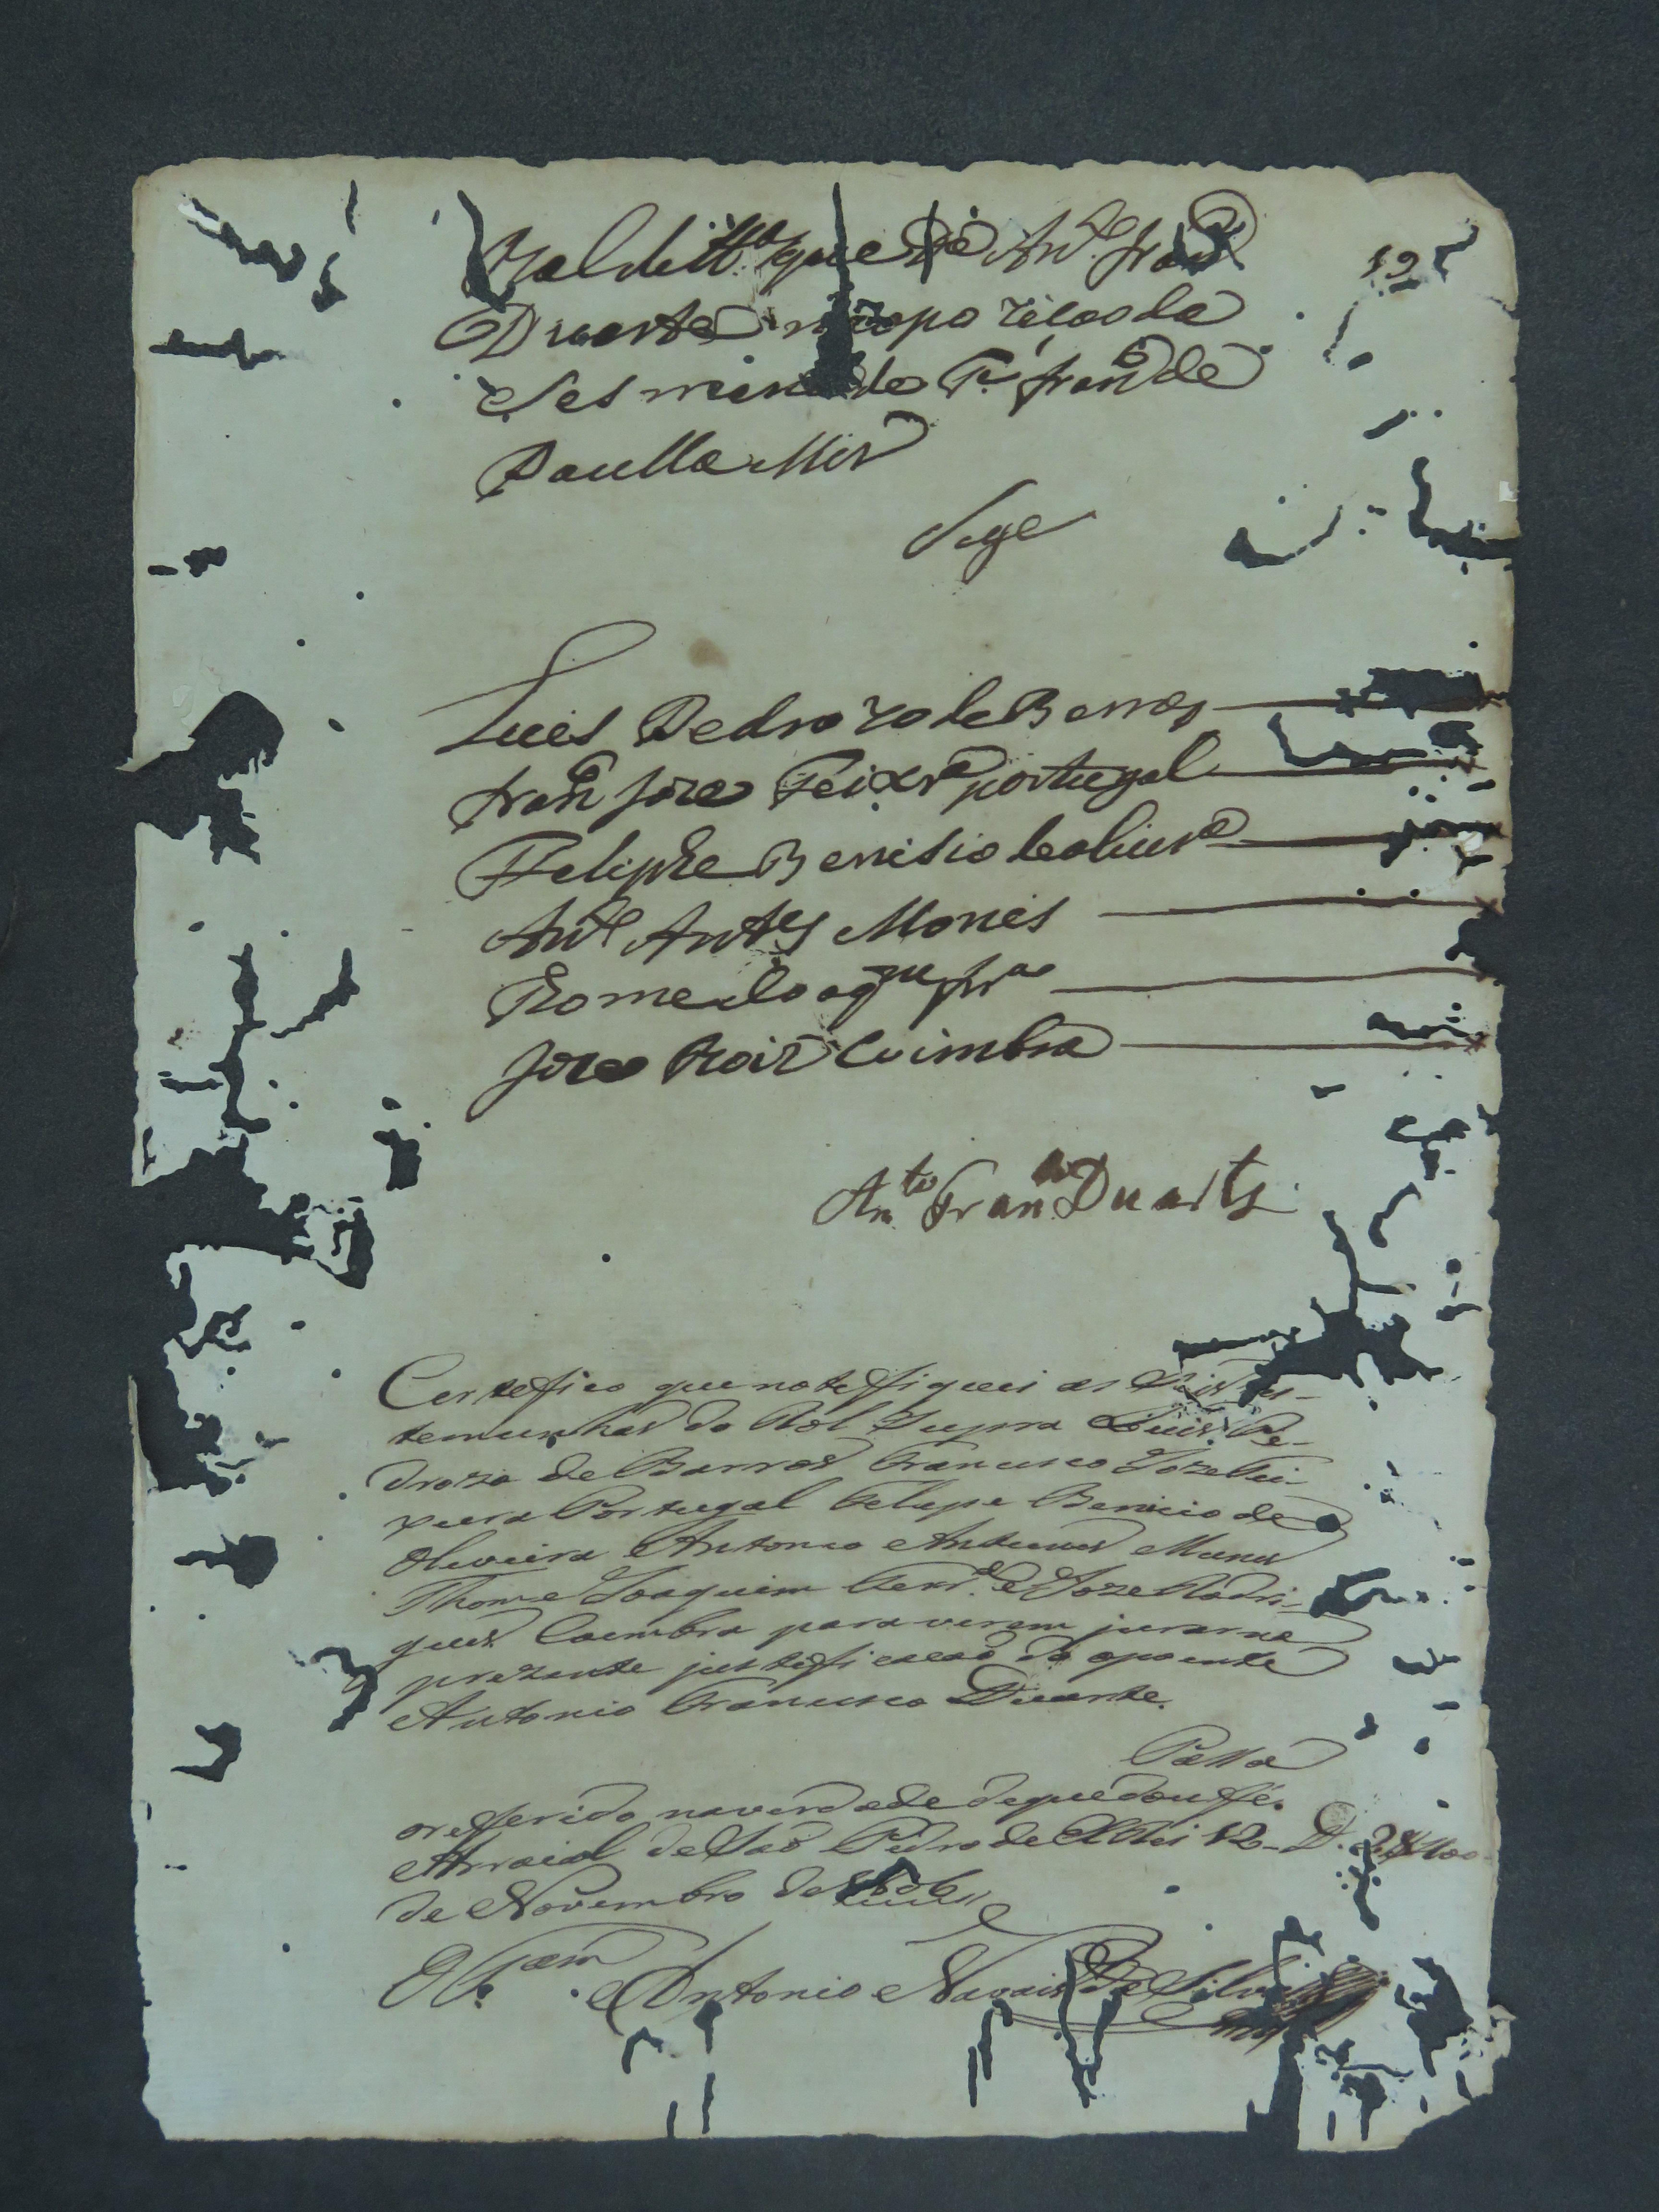 Rol de tt.as que dá An.to Fran.co
19
Duarte na opozicao da
Sesmaria de P.e Fran.co de
Paulla Mis
Sege
Luis Pedrozo de Barros
Fran.co Joze Teixr.a portugal
Feliphe Benisio de olivr.a
An.to Antes Mones
Thome Joaqm frr.a
Joze Roiz Coimbra
An.to Fran.co Duarte
Certefico que noteffiquei as Seis tes-
temunhas do Rol Supra Luis Pe-
drozo de Barros Francisco Joze Tei-
xeira Portugal Felipe Benicio de
Oliveira Antonio Antunes Munes
Thome Joaquim Ferr.a e Joze Rodri-
gues Coimbra para virem jurar na
prezente justefficacaõ do opoente
Antonio Francisco Duarte.
Passa
o refferido na verdade de que dou ffé.
Arraial de Saõ Pedro de ElRei 12
de Novembro de
Antonio Navais da Silva